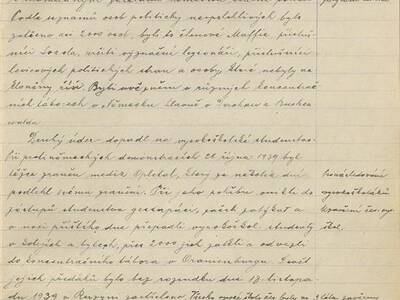 Podle seznamů osob politicky nespolehlivých bylo
zatčeno asi 2000 osob, byli to členové Maffie, přísluš-
níci Sokola, vůdci význační legionáři, příslušníci
levicových politických stran a osoby, které nebyly na-
kloněny říši. Byli uvězněni v různých koncentrač-
ních táborech v Německu hlavně v Dachau a Buchen
waldu.
Druhý úder dopadl na vysokoškolské studentstvo
při protiněmeckých demonstracích 28. října 1939 byl
těžce raněn medik Opletal, který za několik dní
podlehl svému zranění. Při jeho pohřbu omlátilo do
zástupů studentstva gestapáci, počali zatýkat a
v noci příštího dne přepadli vysokošk. studenty
v kolejích a bytech, přes 2000 jich zatkli a odvezli
do koncentračního tábora v Oranienburgu. Devět
jejich předáků bylo bez rozsudku dne 17. listopa-
du 1939 v Ruzyni zastřeleno. Všechny vysoké školy čes. byly na 3 léta zavřeny
Pronásledování
vysokoškoláků
Uzavření čes. vys.
škol.